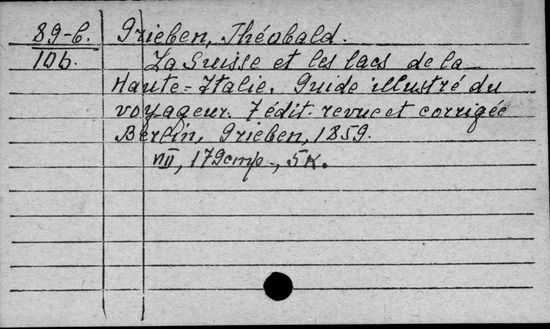 89-6. Grieben, Théobald.
106. La Suisse et les lacs de la
Haute-Italie. Guide illustré du
voyageur. 7 édit. revue et corrigée
Berlin, Grieben, 1859.
VIII, 179 cmp., 5 K.